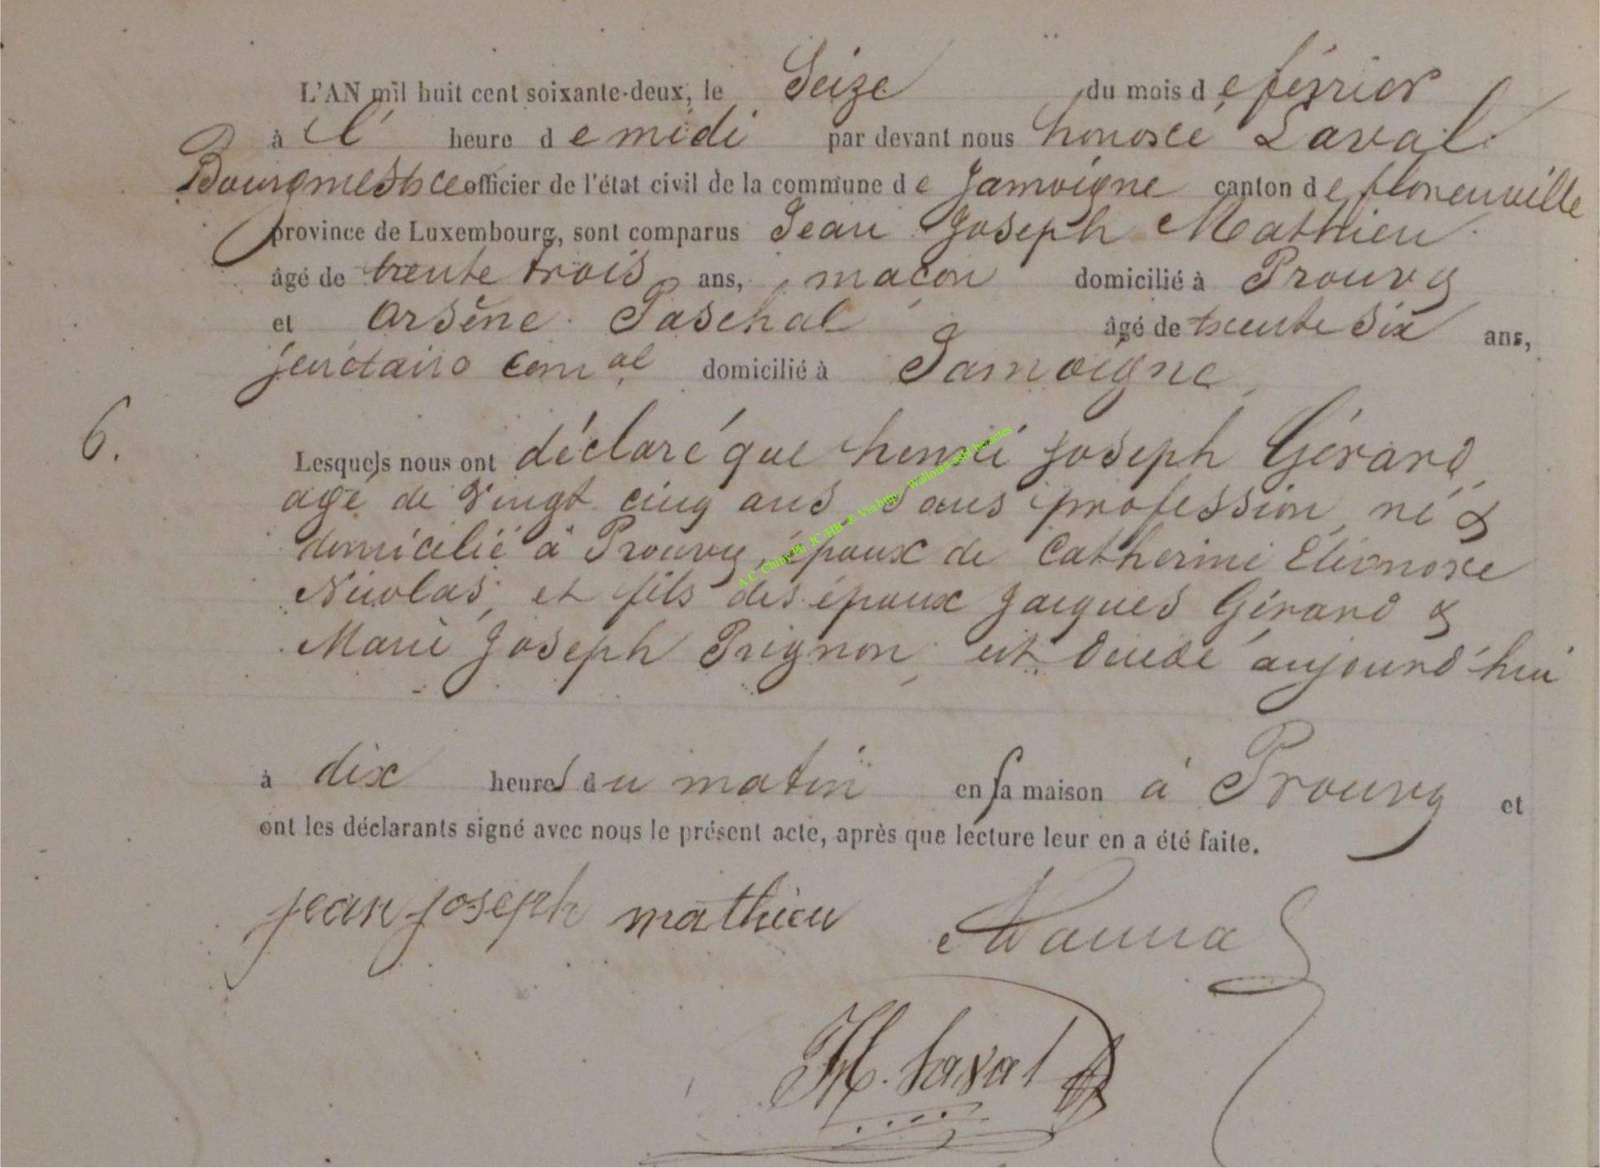 L'AN mil huit cent soixante-deux, le Seize du mois de février
à l' heure de midi par devant nous honoré Laval
Bourgmestre officier de l'état civil de la commune de Jamoigne canton de florenville
province de Luxembourg, sont comparus Jean Joseph Mathieu
âgé de trente trois ans, maçon domicilié à Prouvy
et Arsène Paschal âgé de trente six ans,
secrétaire com al domicilié à Jamoigne
6. Lesquels nous ont déclaré que henri joseph Gérard
agé de vingt cinq ans sans profession, né &
domicilié à Prouvy, époux de Catherine Eléonore
Nicolas, et fils des époux Jacques Gérard &
Marie Joseph Prignon, est décédé aujourd'hui
à dix heures du matin en sa maison à Prouvy et
ont les déclarants signé avec nous le présent acte, après que lecture leur en a été faite.
jean joseph mathieu
H. Laval